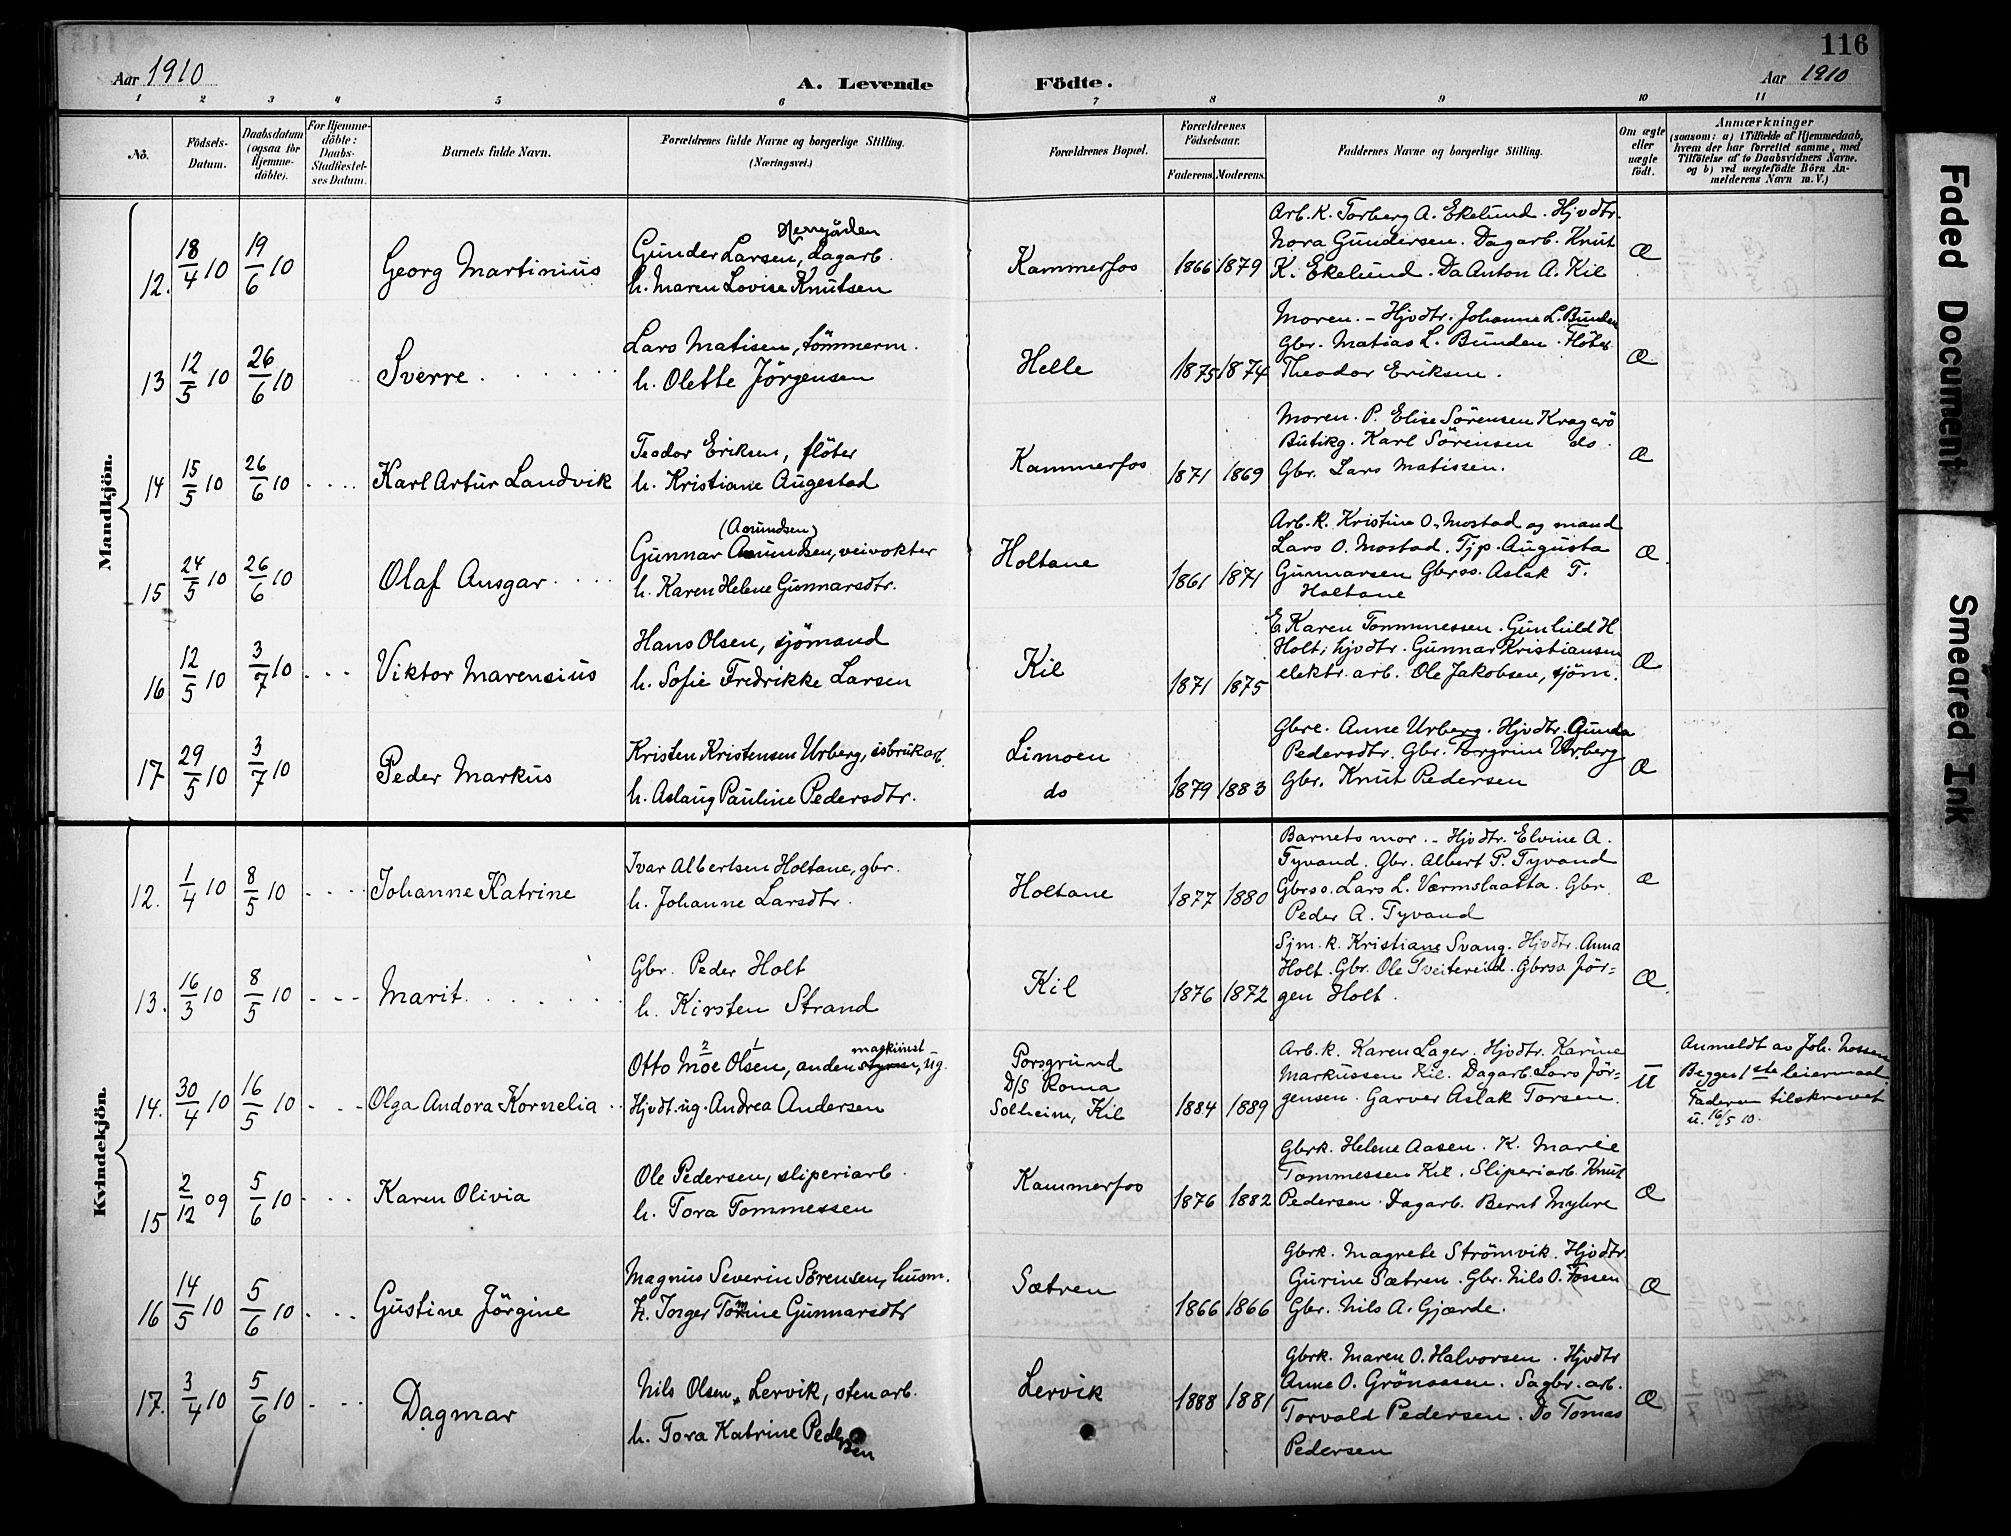 116
Aar 1910
A. Levende Födte.
Aar 1910
1 2 3 4 5 6 7 8 9 10 11
No.
Födsels-Datum.
Daabsdatum (ogsaa for Hjemmedöbte).
For Hjemmedöbte: Daabs-Stadfæstelses Datum.
Barnets fulde Navn.
Forældrenes fulde Navne og borgerlige Stilling.
(Næringsvei.)
Forældrenes Bopæl.
Forældrenes Födselsaar.
Faderens. Moderens.
Faddernes Navne og borgerlige Stilling.
Om ægte eller uægte födt.
Anmærkninger
(saasom: a) i Tilfælde af Hjemmedaab, hvem der har forrettet samme, med Tilföielse af to Daabsvidners Navne, og b) ved uægtefödte Börn Anmelderens Navn m. V.)
Mandkjön.
12. 18/4 10 19/6 10 Georg Martinius
Gunder Larsen, Dagarb.
h. Maren Lovise Knutsen
Kammerfos 1866 1879
Arb. k. Torberg A. Ekelund. Hjvdtr.
Nora Gundersen. Dagarb. Knut
K. Ekelund. Do Anton A. Kil
Æ
13 12/5 10 26/6 10 Sverre
Lars Matisen, tömmerm.
h. Olette Jörgensen
Helle 1875 1874
Moren. - Hjvdtr. Johanne L. Bunden
Gbr. Matias L. Bunden. Flöter
Theodor Eriksen.
Æ
14 15/5 10 26/6 10 Karl Artur Landvik
Teodor Eriksen, flöter
h. Kristiane Augestad
Kammerfos 1871 1869
Moren. P. Elise Sörensen Kragerö
Butikg. Karl Sörensen do.
Gbr. Lars Matissen.
Æ
15 24/5 10 26/6 10 Olaf Ansgar
(Amundsen)
Gunnar Amundsen, veivokter
h. Karen Helene Gunnarsdtr.
Holtane 1861 1871
Arb. k. Kristine O. Mostad og mand
Lars O. Mostad. Tjp. Augusta
Gunnarsen Gbrss. Aslak T.
Holtane
Æ
16 12/5 10 3/7 10 Viktor Marensius
Hans Olsen, sjömand
h. Sofie Fredrikke Larsen
Kil 1871 1875
E. Karen Tommessen. Gunhild H
Holt, hjvdtr. Gunnar Kristiansen
elektr. arb. Ole Jakobsen, sjöm.
Æ
17 29/5 10 3/7 10 Peder Markus
Kristen Kristensen Urberg, isbrukarb.
h. Aslaug Pauline Pedersdtr.
Limoen
do 1879 1883
Gbre. Anne Urberg. Hjvdtr. Gunda
Pedersdtr. Gbr. Torgrim Urberg
Gbr. Knut Pedersen
Æ
Kvindekjön.
12. 1/4 10 8/5 10 Johanne Katrine
Ivar Albertsen Holtane, gbr.
h. Johanne Larsdtr.
Holtane 1877 1880
Barnets mor. - Hjvdtr. Elvine A.
Tyvand. Gbr. Albert P. Tyvand
Gbrss. Lars L. Værmslaatta. Gbr.
Peder A. Tyvand
æ
13. 16/3 10 8/5 10 Marit
Gbr. Peder Holt
h. Kirsten Strand
Kil 1876 1872
Sjm. k. Kristiane Svang. Hjvdtr. Anna
Holt. Gbr. Ole Tveitereid. Gbrss. Jör=
gen Holt.
Æ
14. 30/4 10 16/5 10 Olga Andora Kornelia
maskinist
Otto Moe Olsen, anden ug.
Hjvdt. ug. Andrea Andersen
Porsgrund
D/S Roma
Solheim, Kil 1884 1889
Arb. k. Karen Lager. Hjvdtr. Karine
Markussen Kil. Dagarb. Lars Jör-
gensen. Garver Aslak Torsen.
U
Anmeldt av Joh. Nossen
Begges 1ste leiermaal
Faderen tilskrevet
u. 16/5 10.
15 2/12 09 5/6 10 Karen Olivia
Ole Pedersen, sliperiarb.
h. Tora Tommessen
Kammerfos 1876 1882
Gbrk. Helene Aasen. K. Marie
Tommessen Kil. Sliperiarb. Knut
Pedersen. Dagarb. Bernt Myhre
Æ
16 14/5 10 5/6 10 Gustine Jörgine
Magnus Severin Sörensen, husm.
h. Inger Tomine Gunnarsdtr
Sætren 1866 1866
Gbrk. Magnete Strömvik. Hjvdtr.
Gurine Sætren. Gbr. Nils O. Fossen
Gbr. Nils A. Gjærde.
Æ
17. 3/4 10 5/6 10 Dagmar
Nils Olsen, Lervik, stenarb.
h. Tora Katrine Pedersen
Lervik 1888 1881
Gbrk. Maren O. Halvorsen. Hjvdtr
Anne O. Grönaasen. Sagbr. arb.
Torvald Pedersen. Do Tomas
Pedersen
Æ
Faded Document
Smeared Ink